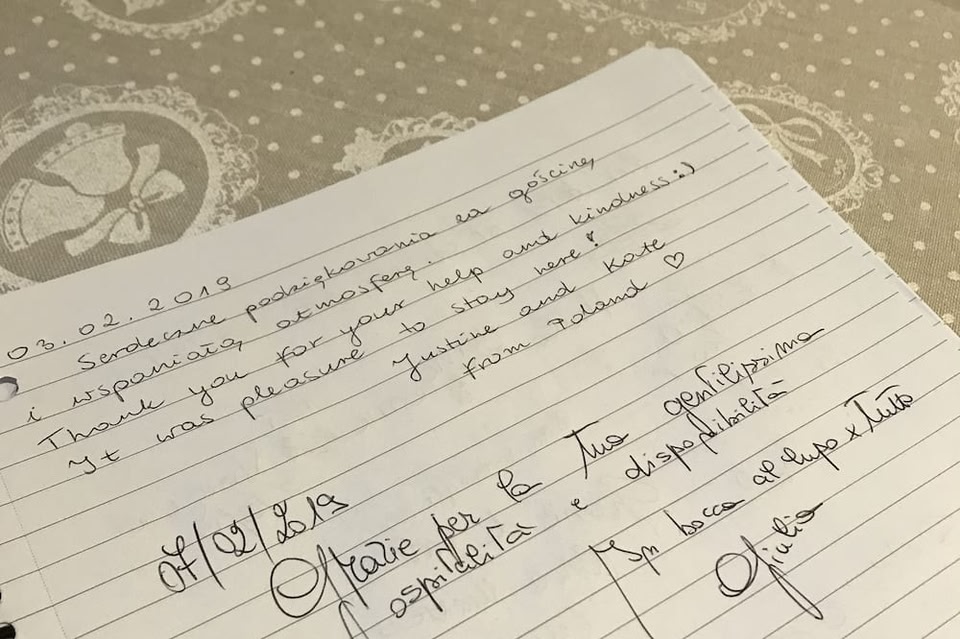 03.02.2019
Serdeczne podziękowania za gościnę,
i wspaniałą atmosferę.
Thank you for your help and kindness :)
It was pleasure to stay here!
Justine and Kate
from Poland ♡
07/02/2019
Grazie per la tua gentilissima
ospitalità e disponibilità
In bocca al lupo x tutto
Giulia